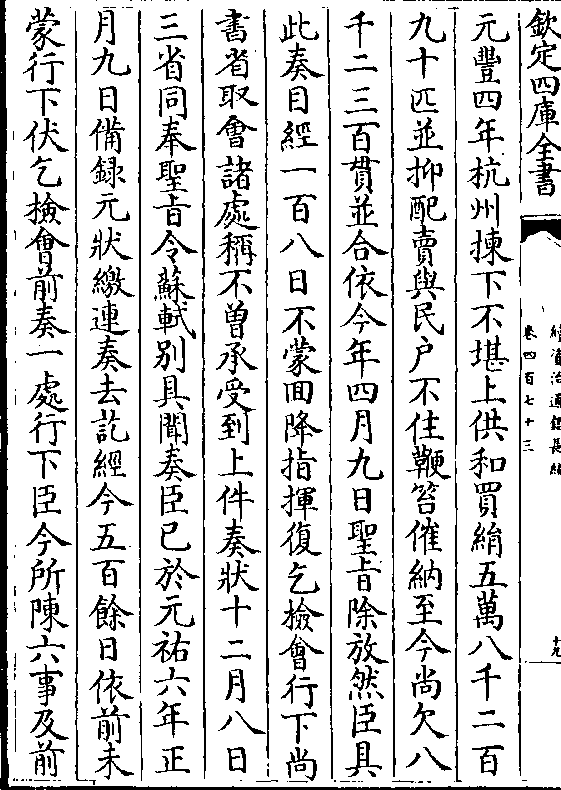 欽定四庫全書
續資治通鑑長編
卷四百七十三
十九
元豐四年杭州揀下不堪上供和買絹五萬八千二百
九十匹並抑配賣與民户不住鞭笞催納至今尚欠八
千二三百貫並合依今年四月九日聖旨除放然臣具
此奏目經一百八日不蒙回降指揮復乞檢會行下尚
書省取會諸處稱不曾承受到上件奏狀十二月八日
三省同奉聖旨令蘇軾别具聞奏臣已於元祐六年正
月九日備録元狀繳連奏去訖經今五百餘日依前未
蒙行下伏乞檢會前奏一處行下臣今所陳六事及前